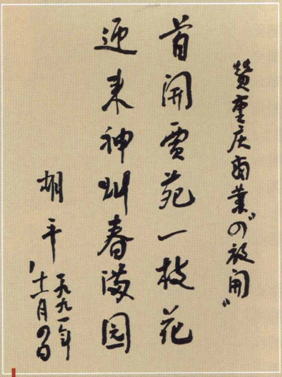 赞重庆商业の"四放开"
首开贾苑一枝花
迎来神州春满园
胡平
一九九一年
十一月四日